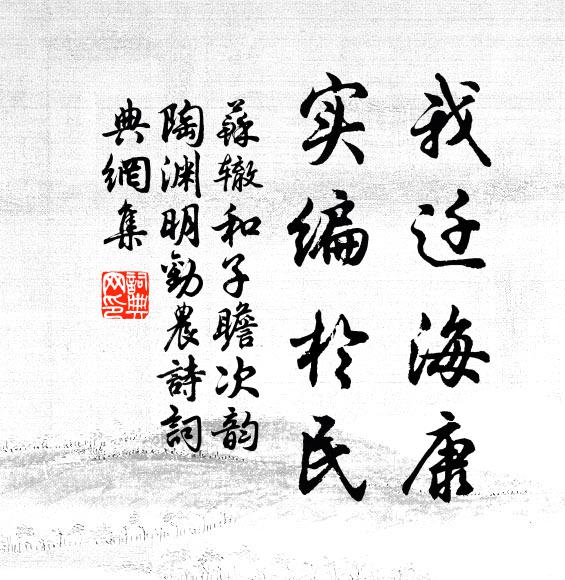 我迁海康
实编于民
蘇辙和子瞻次韵
陶渊明勸農詩詞
典網集
詞典网印